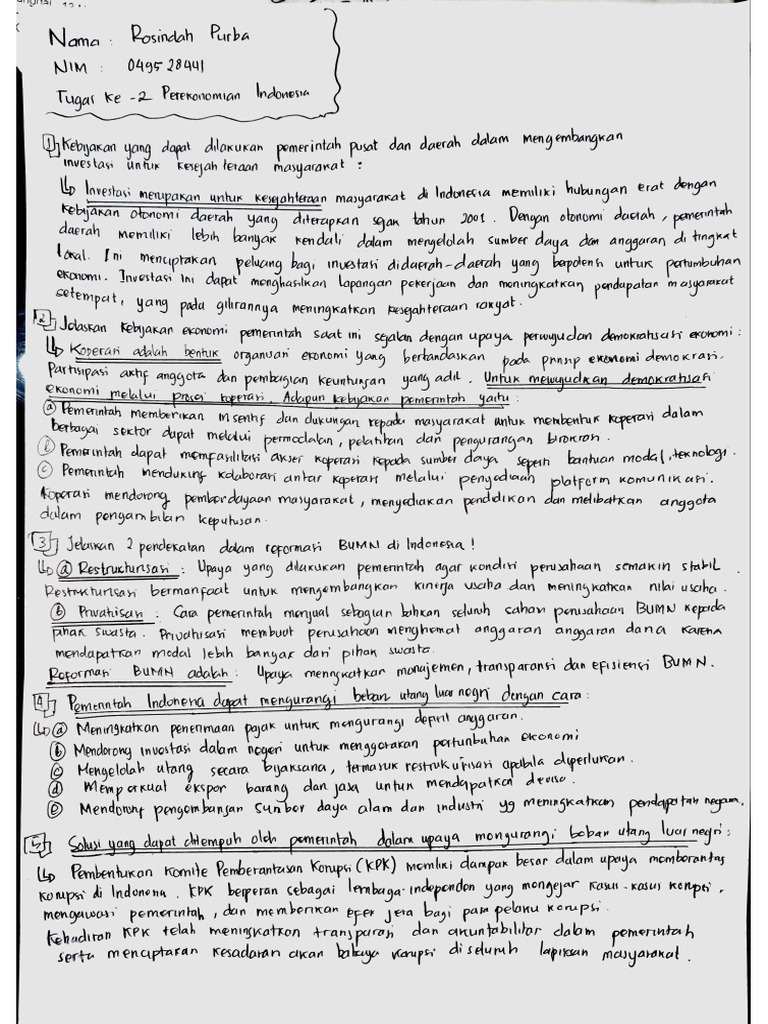 Nama : Rosindah Purba
NIM : 049528441
Tugas Ke -2 Perekonomian Indonesia
1 Kebijakan yang dapat dilakukan pemerintah pusat dan daerah dalam mengembangkan
investasi untuk kesejahteraan masyarakat :
↳ Investasi merupakan untuk kesejahteraan masyarakat di Indonesia memiliki hubungan erat dengan
kebijakan otonomi daerah yang diterapkan sejak tahun 2001. Dengan otonomi daerah, pemerintah
daerah memiliki lebih banyak kendali dalam mengelolah sumber daya dan anggaran di tingkat
lokal. Ini menciptakan peluang bagi investasi didaerah-daerah yang berpotensi untuk pertumbuhan
ekonomi. Investasi ini dapat menghasilkan lapangan pekerjaan dan meningkatkan pendapatan masyarakat
setempat, yang pada gilirannya meningkatkan kesejahteraan rakyat.
2 Jelaskan kebijakan ekonomi pemerintah saat ini sejalan dengan upaya perwujudan demokratisasi ekonomi :
↳ Koperasi adalah bentuk organisasi ekonomi yang berlandaskan pada prinsip ekonomi demokrasi.
Partisipasi aktif anggota dan pembagian keuntungan yang adil. Untuk mewujudkan demokratisasi
ekonomi melalui proses koperasi. Adapun kebijakan pemerintah yaitu :
a Pemerintah memberikan insentif dan dukungan kepada masyarakat untuk membentuk koperasi dalam
berbagai sektor dapat melalui permodalan, pelatihan dan pengurangan birokrasi.
b Pemerintah dapat memfasilitasi akses koperasi kepada sumber daya seperti bantuan modal, teknologi.
c Pemerintah mendukung kolaborasi antar koperasi melalui penyediaan platform komunikasi.
Koperasi mendorong pemberdayaan masyarakat, menyediakan pendidikan dan melibatkan anggota
dalam pengambilan keputusan.
3 Jelaskan 2 pendekatan dalam reformasi BUMN di Indonesia !
↳ a Restrukturisasi : Upaya yang dilakukan pemerintah agar kondisi perusahaan semakin stabil.
Restrukturisasi bermanfaat untuk mengembangkan kinerja usaha dan meningkatkan nilai usaha.
b Privatisasi : Cara pemerintah menjual sebagian bahkan seluruh saham perusahaan BUMN kepada
pihak swasta. Privatisasi membuat perusahaan menghemat anggaran anggaran dana karena
mendapatkan modal lebih banyak dari pihak swasta.
Reformasi BUMN adalah : Upaya meningkatkan manajemen, transparansi dan efisiensi BUMN.
4 Pemerintah Indonesia dapat mengurangi beban utang luar negri dengan cara :
↳ a Meningkatkan penerimaan pajak untuk mengurangi defisit anggaran.
b Mendorong investasi dalam negeri untuk menggerakan pertumbuhan ekonomi
c Mengelolah utang secara bijaksana, termasuk restrukturisasi apabila diperlukan.
d Memperkuat ekspor barang dan jasa untuk mendapatkan devisa.
e Mendorong pengembangan sumber daya alam dan industri yg meningkatkan pendapatan negara.
5 Solusi yang dapat ditempuh oleh pemerintah dalam upaya mengurangi beban utang luar negri :
↳ Pembentukan Komite Pemberantasan Korupsi (KPK) memiliki dampak besar dalam upaya memberantas
korupsi di Indonesia. KPK berperan sebagai lembaga independen yang mengejar kasus-kasus korupsi,
mengawasi pemerintah, dan memberikan efek jera bagi para pelaku korupsi.
Kehadiran KPK telah meningkatkan transparasi dan akuntabilitas dalam pemerintah
serta menciptakan kesadaran akan bahaya korupsi di seluruh lapisan masyarakat.